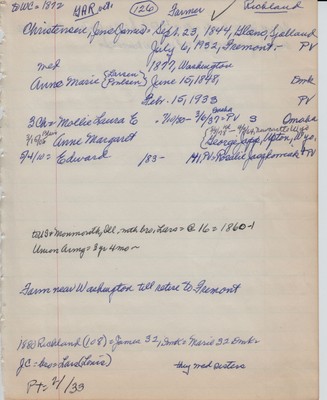 DWC = 1872 GAR (126) Farmer Richland
Christensen, Jens (James) = Sept. 23, 1844, Sjelland
July 6, 1932, Fremont - PV
md 1877, Washington
Anne Marie {Larsen Poulsen} June 15, 1848, Dmk
Febr. 15, 1933 PV
3 Ch = Mollie Laura E = 7/10/80 - 3/6/37 = PV S Omaha
Omaha
Anne Margaret George Japp, Upton, Wyo.
5/4/10 = Edward /83 - M, PV =
to US = Monmouth, Ill. with bro, Lars = @ 16 = 1860-1
Union Army = 3 yr 4 mo ~
Farm near Washington till retire to Fremont
1880 Richland (108) = James 32, Dmk = Marie 32 Dmk =
JC = bro = Lars (Lewis) they md sisters
PT = 2/ /33